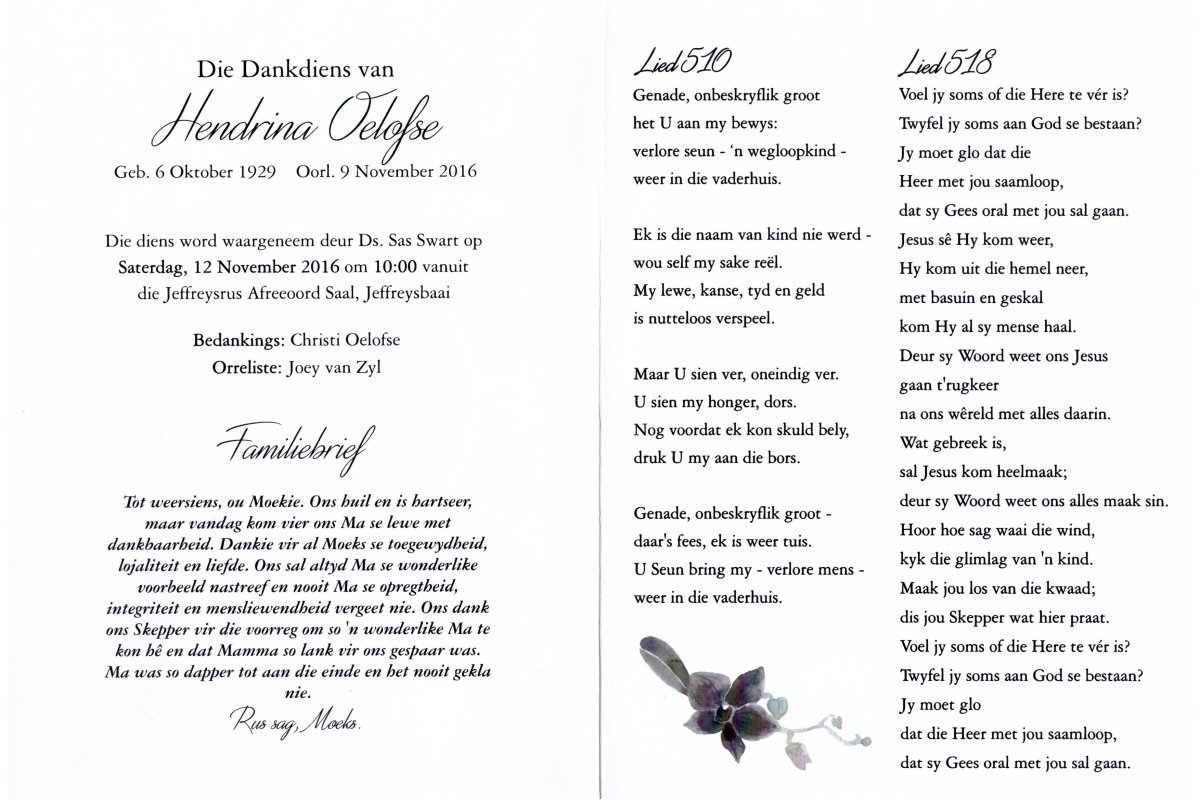 Die Dankdiens van
Hendrina Oelofse
Geb. 6 Oktober 1929 Oorl. 9 November 2016
Die diens word waargeneem deur Ds. Sas Swart op
Saterdag, 12 November 2016 om 10:00 vanuit
die Jeffreysrus Afreeoord Saal, Jeffreysbaai
Bedankings: Christi Oelofse
Orreliste: Joey van Zyl
Familiebrief
Tot weersiens, ou Moekie. Ons huil en is hartseer,
maar vandag kom vier ons Ma se lewe met
dankbaarheid. Dankie vir al Moeks se toegewydheid,
lojaliteit en liefde. Ons sal altyd Ma se wonderlike
voorbeeld nastreef en nooit Ma se opregtheid,
integriteit en mensliewendheid vergeet nie. Ons dank
ons Skepper vir die voorreg om so 'n wonderlike Ma te
kon hê en dat Mamma so lank vir ons gespaar was.
Ma was so dapper tot aan die einde en het nooit gekla
nie.
Rus sag, Moeks.
Lied 510
Genade, onbeskryflik groot
het U aan my bewys:
verlore seun - ‘n wegloopkind -
weer in die vaderhuis.
Ek is die naam van kind nie werd -
wou self my sake reël.
My lewe, kanse, tyd en geld
is nutteloos verspeel.
Maar U sien ver, oneindig ver.
U sien my honger, dors.
Nog voordat ek kon skuld bely,
druk U my aan die bors.
Genade, onbeskryflik groot -
daar's fees, ek is weer tuis.
U Seun bring my - verlore mens -
weer in die vaderhuis.
Lied 518
Voel jy soms of die Here te vér is?
Twyfel jy soms aan God se bestaan?
Jy moet glo dat die
Heer met jou saamloop,
dat sy Gees oral met jou sal gaan.
Jesus sê Hy kom weer,
Hy kom uit die hemel neer,
met basuin en geskal
kom Hy al sy mense haal.
Deur sy Woord weet ons Jesus
gaan t'rugkeer
na ons wêreld met alles daarin.
Wat gebreek is,
sal Jesus kom heelmaak;
deur sy Woord weet ons alles maak sin.
Hoor hoe sag waai die wind,
kyk die glimlag van 'n kind.
Maak jou los van die kwaad;
dis jou Skepper wat hier praat.
Voel jy soms of die Here te vér is?
Twyfel jy soms aan God se bestaan?
Jy moet glo
dat die Heer met jou saamloop,
dat sy Gees oral met jou sal gaan.